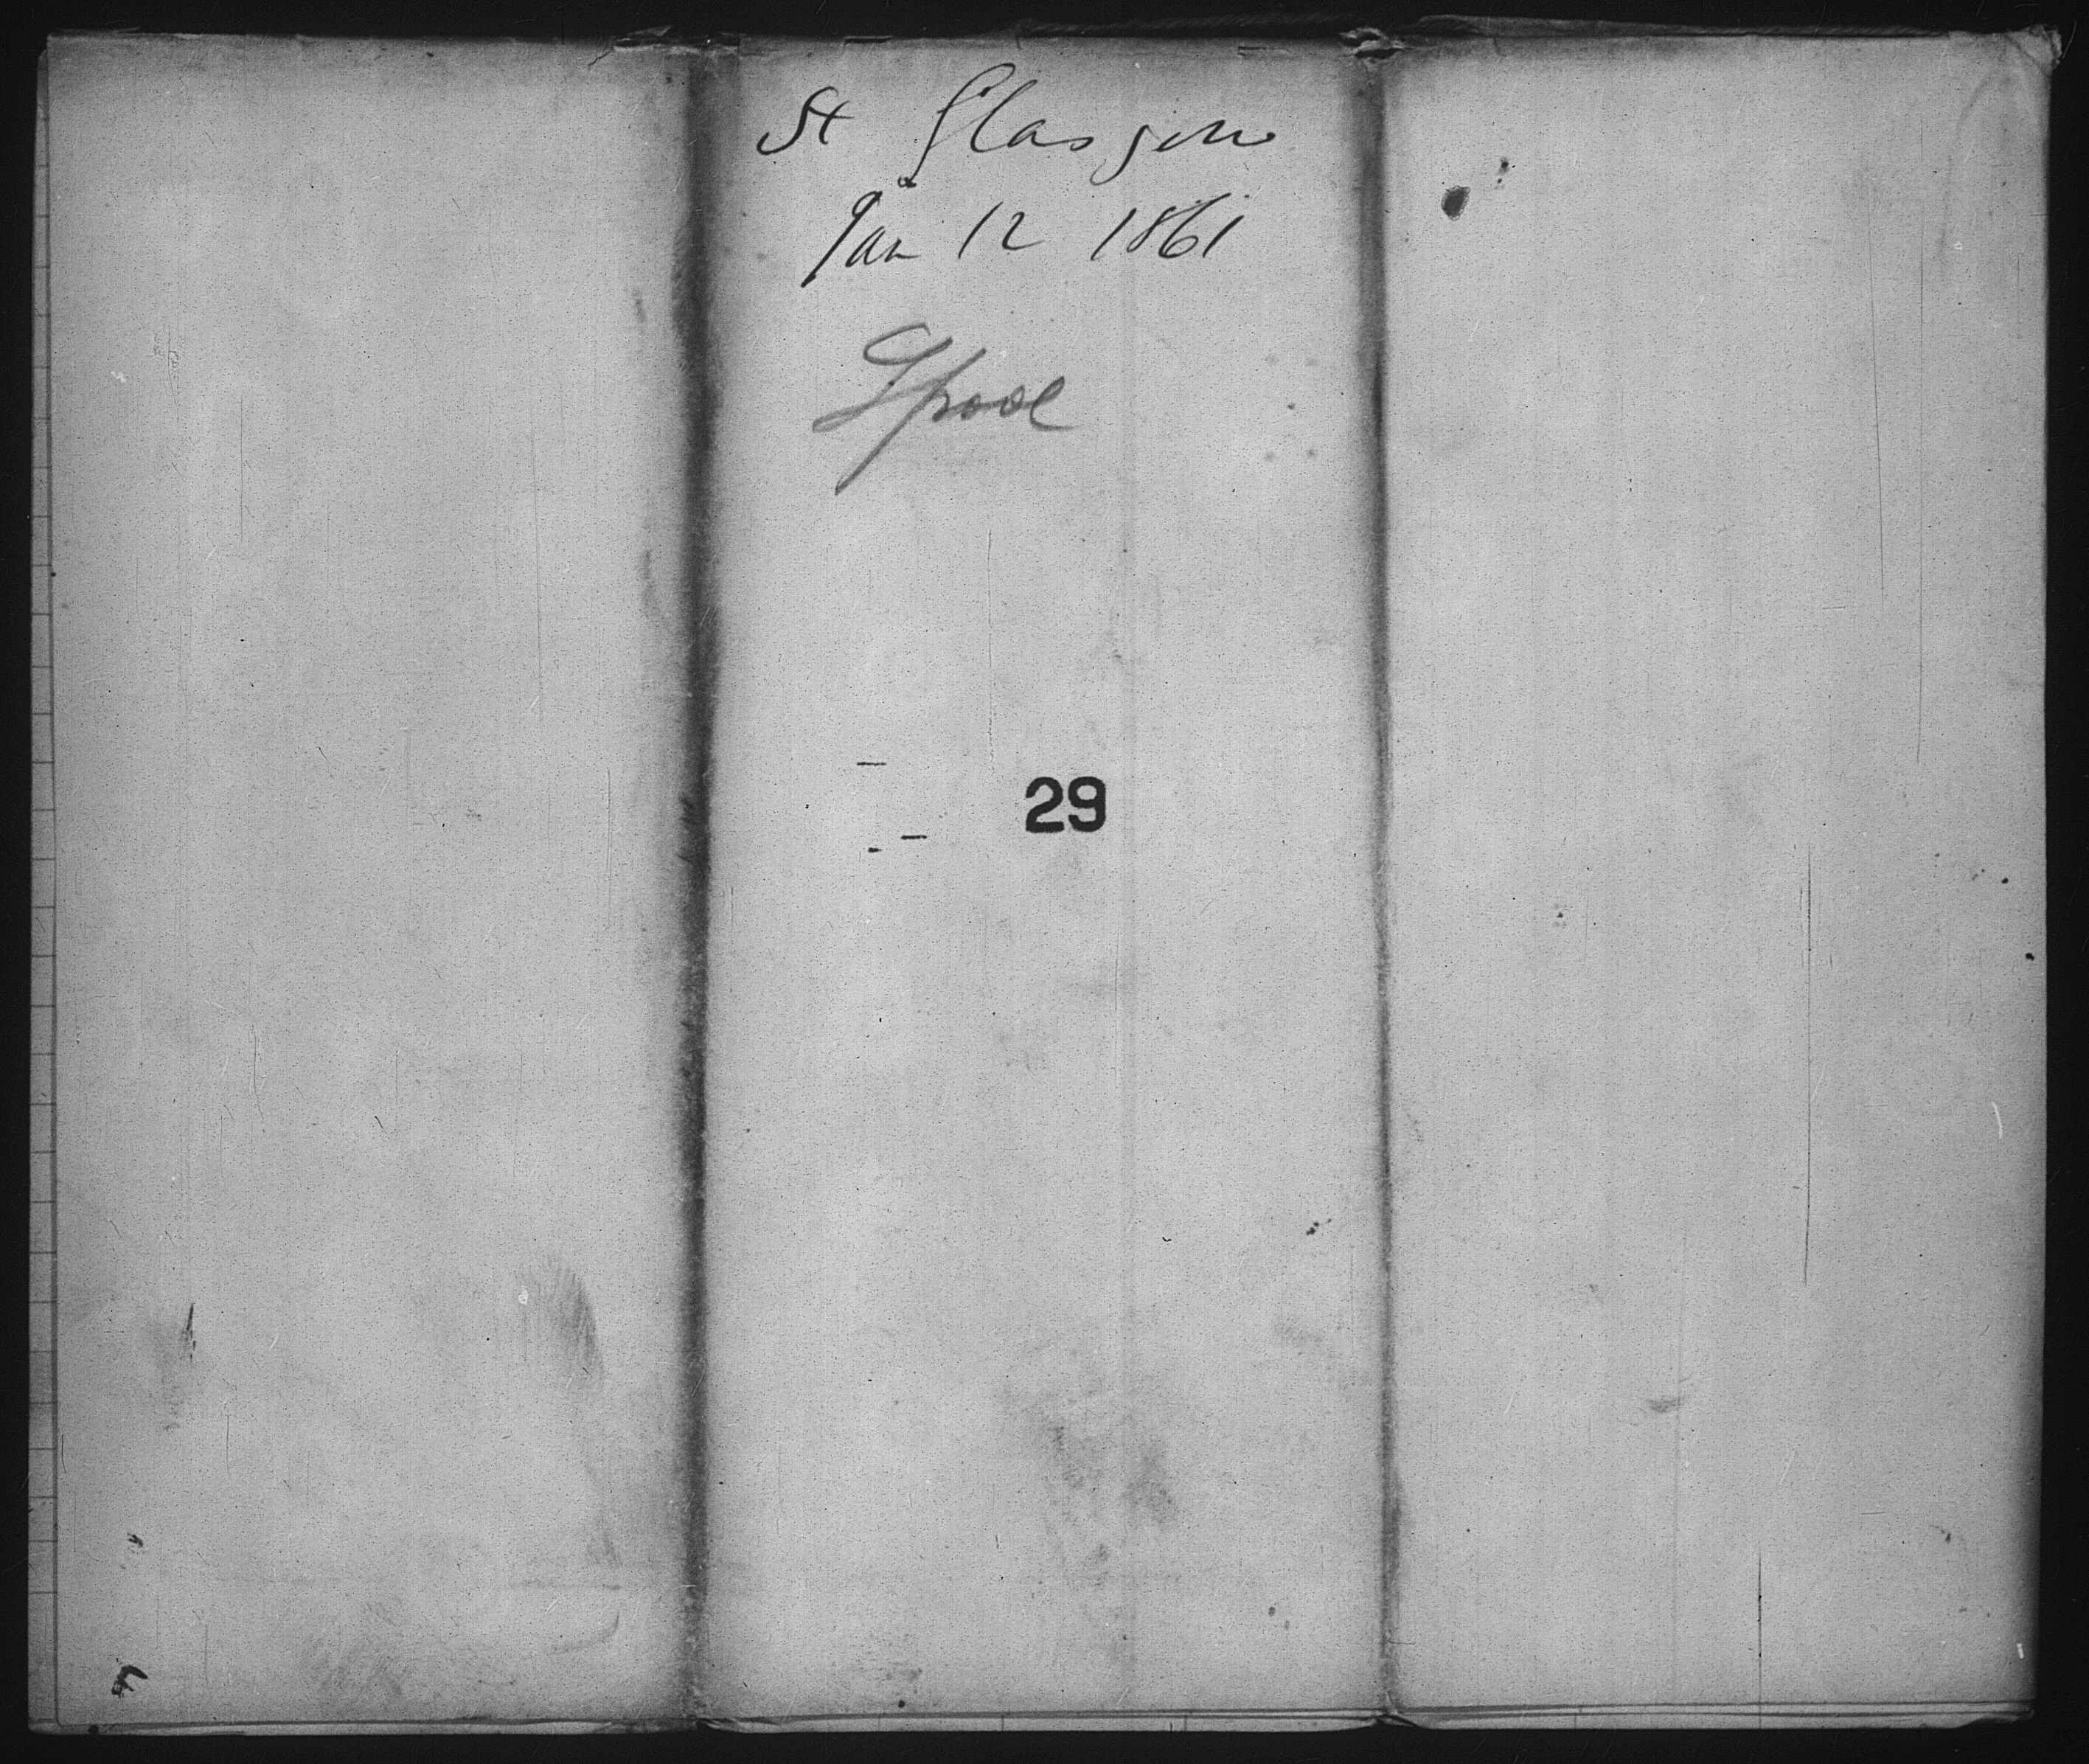 St Glasgow
Jan 12 1861
Lpool
29